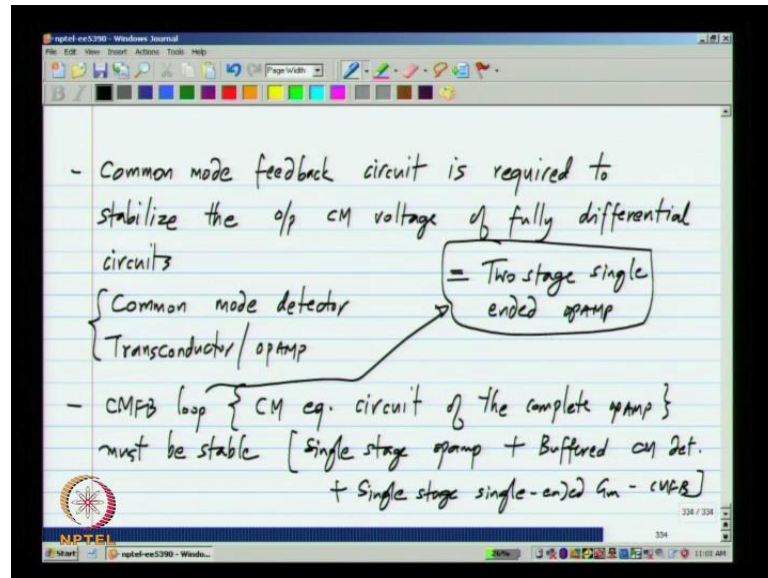 nptel-ee5390 - Windows Journal
File Edit View Insert Actions Tools Help
Page Width
- Common mode feedback circuit is required to
stabilize the o/p CM voltage of fully differential
circuits
= Two stage single
ended opamp
{ Common mode detector
Transconductor / opamp
- CMFB loop { CM eq. circuit of the complete opamp }
must be stable [ Single stage opamp + Buffered CM det.
+ Single stage single-ended Gm - CMFB ]
334 / 334
334
NPTEL
Start nptel-ee5390 - Windo... 26% 11:01 AM